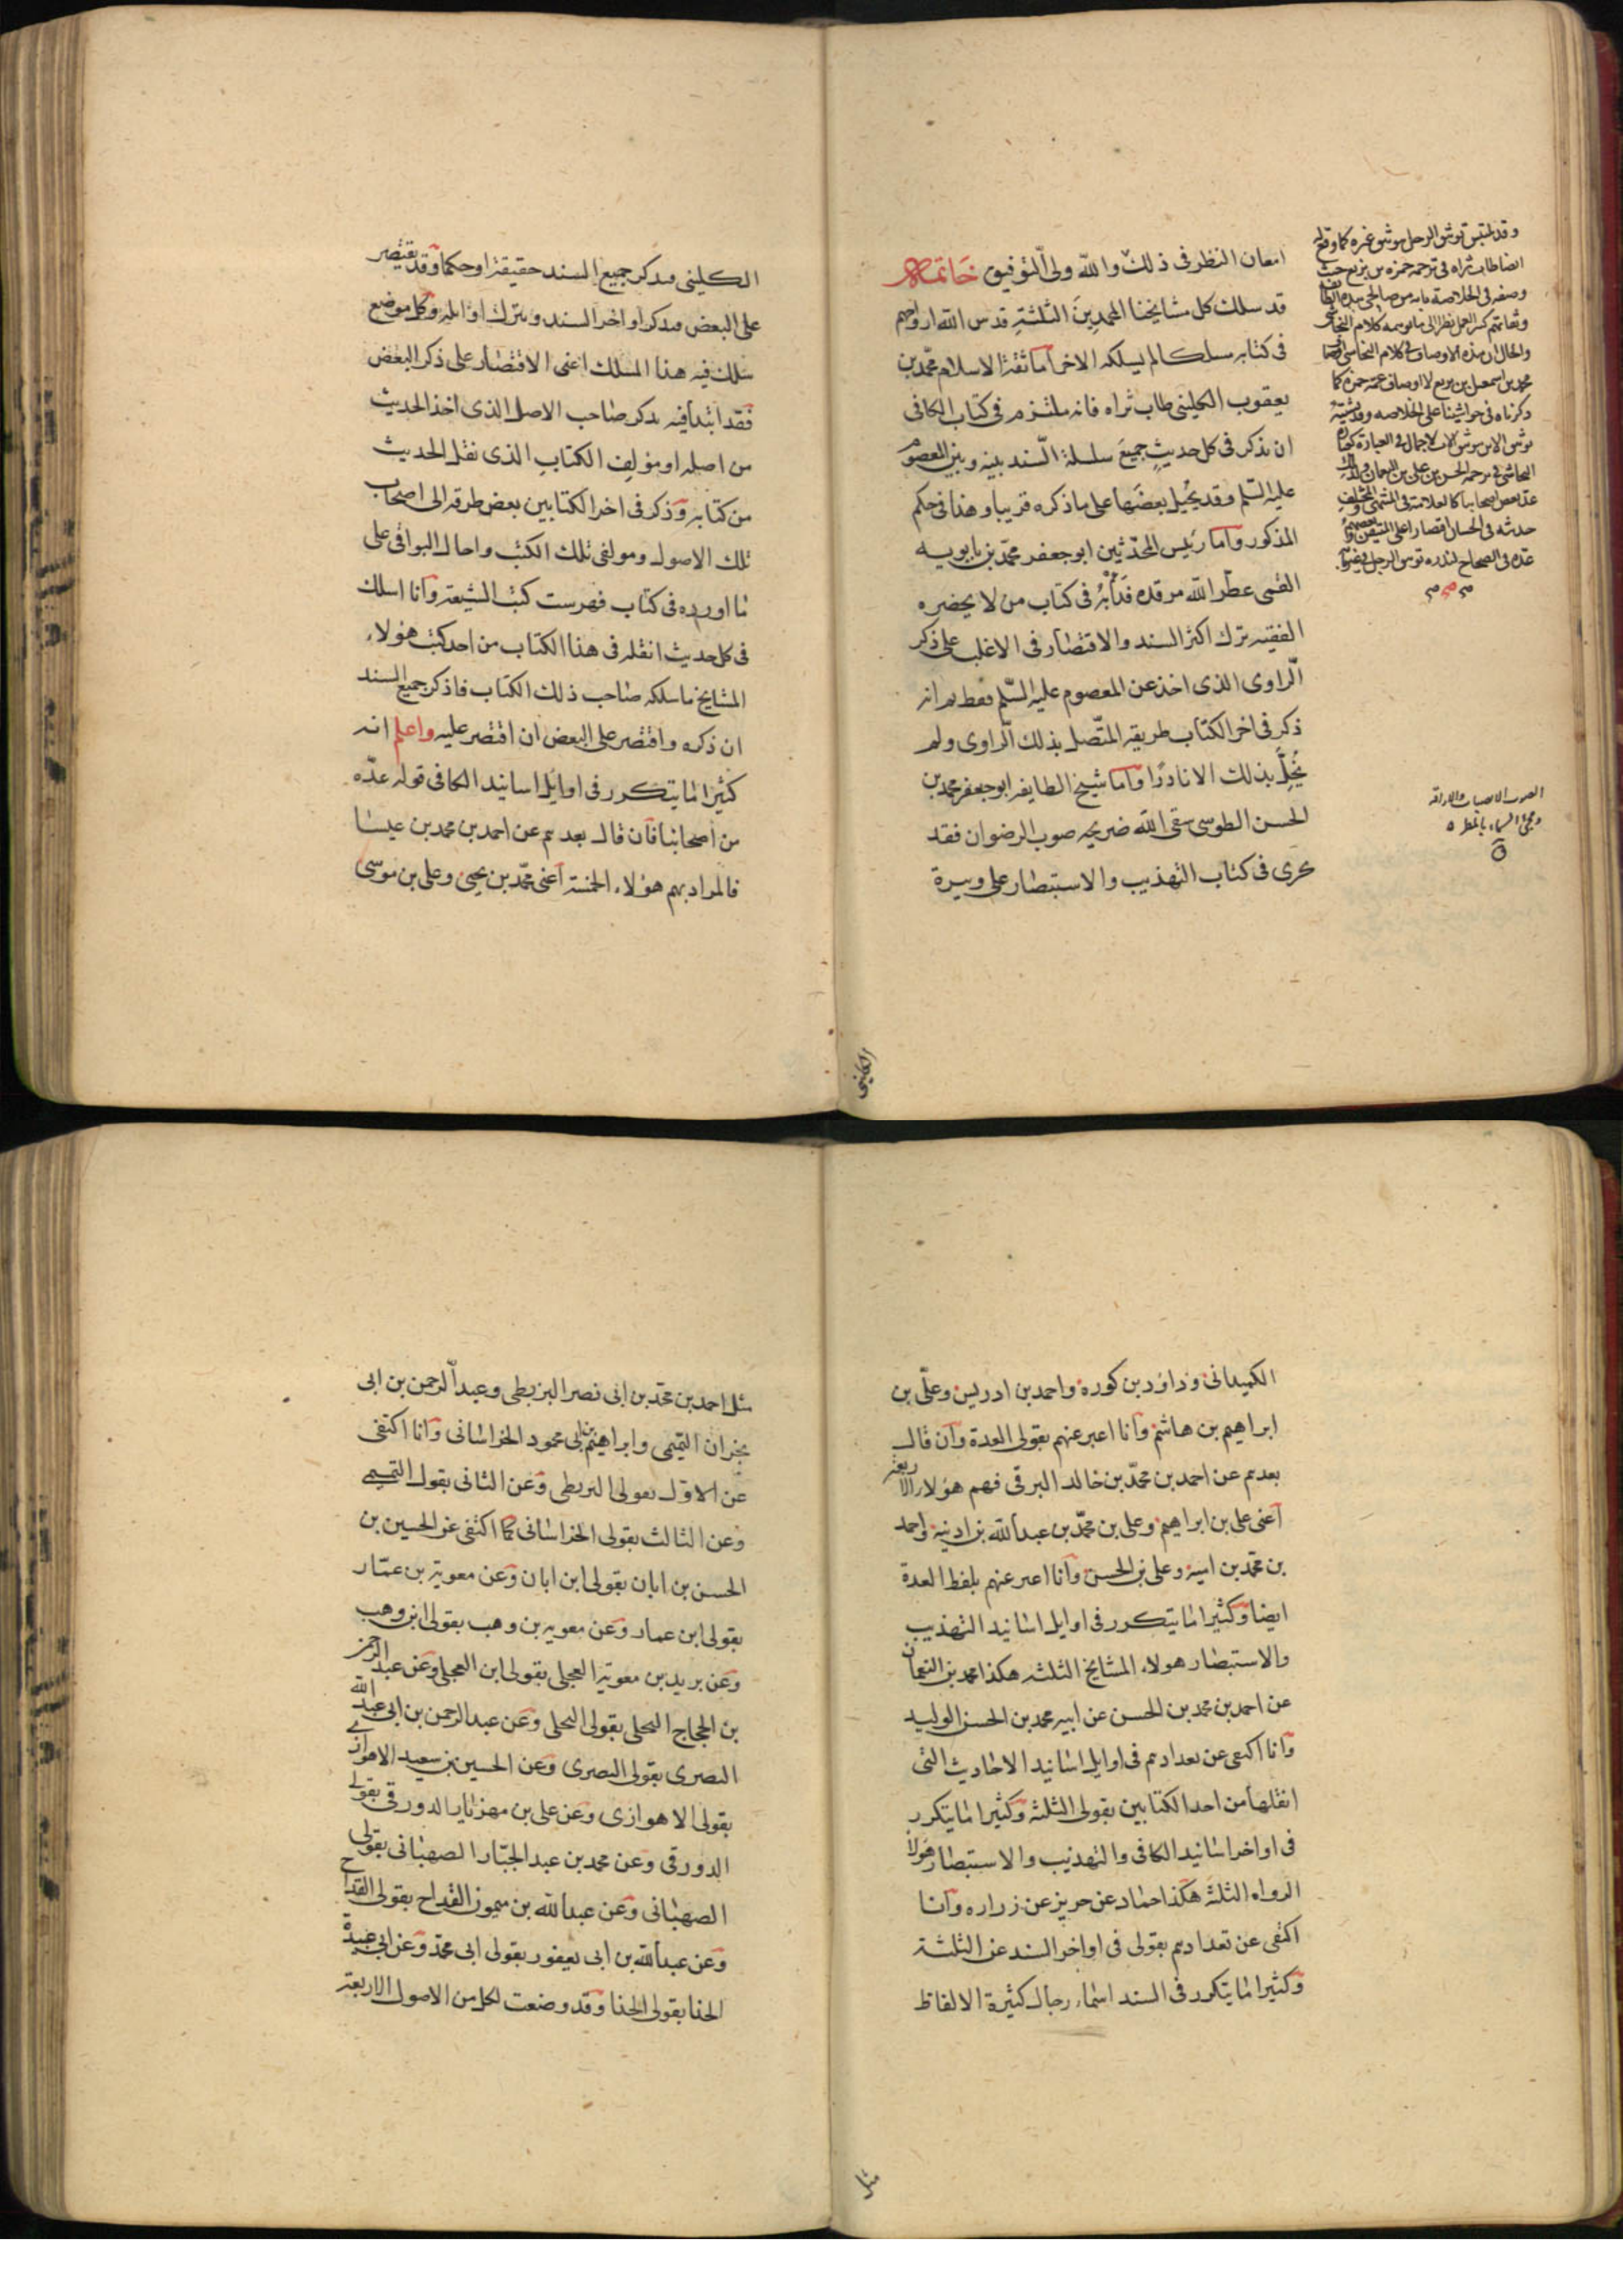 امعان النظر فى ذلك والله ولىّ التوفيق خاتمة
قد سلك كل مشايخنا المحمدِينَ الثلثةِ قدس الله ارواحهم
فى كتابه مسلكا لم يسلكه الاخر اما ثقة الاسلام محمّد بن
يعقوب الكلينى طاب ثراه فانه ملتزم فى كتاب الكافى
ان يذكر فى كل حديثٍ جميعَ سلسلة السّند بينه وبين المعصوم
عليه السّلم وقد يُحيل بعضَها على ما ذكره قريبا وهذا فى حكم
المذكور وآما رئيس المحدّثين ابو جعفر محمّد بن بابويه
القمى عطّر الله مرقده فدَأْبُهُ فى كتاب من لا يحضره
الفقيه ترك اكثر السند والاقتصار فى الاغلب على ذكر
الّراوى الذى اخذ عن المعصوم عليه السّلم فقط ثم انه
ذكر فى اخر الكتاب طريقه المتّصل بذلك الّراوى ولم
يُخِلَّ بذلك الا نادرًا وآما شيخ الطايفه ابو جعفر محمد بن
الحسن الطوسى سقى الله ضريحه صوب الرضوان فقد
جرى فى كتاب التهذيب والاستبصار على وتيرة
وقد يلتبس توثيق الرجل بتوثيق غيره كما وقع
ايضا طاب ثراه فى ترجمة حمزه بن بزيع حيث
وصفه فى الخلاصة بانه من صالحى هذه الطائفة
وثقاتهم كثير العمل نظرا الى ما يوهمه كلام النجاشى
والحال ان هذه الاوصاف فى كلام النجاشى اوصاف
محمد بن اسمعيل بن بزيع لا اوصاف عمه حمزه كما
ذكرناه فى حواشينا على الخلاصه وقد يشتبه
توثيق الابن بتوثيق الاب لاجمال فى العبارة كعبارة
النجاشى فى ترجمة الحسن بن على بن النعمان ولذلك
عد بعض اصحابنا كالعلامة فى المنتهى والمختلف
حديثه فى الحسان اقتصارا على المتيقن وبعضهم
عدّه فى الصحاح
الصوب الانصباب والاراقه
ومجئ السماء بالمطر
الكلينى
الكلينى فيذكر جميع السند حقيقة او حكما وقد يقتصر
على البعض فيذكر اواخر السند ويترك اوايله وكل موضع
سلك فيه هذا المسلك اعنى الاقتصار على ذكر البعض
فقد ابتدأ فيه بذكر صاحب الاصل الذى اخذ الحديث
من اصله او مؤلِف الكتابِ الذى نقل الحديث
من كتابه وذكر فى اخر الكتابين بعض طرقه الى اصحاب
تلك الاصول ومولفى تلك الكتب واحال البواقى على
ما اورده فى كتاب فهرست كتب الشيعة وآنا اسلك
فى كل حديث انقله فى هذا الكتاب من احد كتب هؤلاء
المشايخ ما سلكه صاحب ذلك الكتاب فاذكر جميع السند
ان ذكره واقتصر على البعض ان اقتصر عليه واعلم انه
كثيرا ما يتكرر فى اوايل اسانيد الكافى قوله عدّه
من اصحابنا فآن قال بعدهم عن احمد بن محمد بن عيسا
فالمراد بهم هؤلاء الخمسة آعنى محمّد بن يحيى وعلى بن موسى
الكميدانى وداود بن كوره واحمد بن ادريس وعلّى بن
ابراهيم بن هاشم وآنا اعبر عنهم بقولى العدة وآن قال
بعدهم عن احمد بن محمّد بن خالد البرقى فهم هؤلاء الاربعة
آعنى على بن ابراهيم وعلى بن محمّد بن عبد الله بن اذينه واحمد
بن محمّد بن اميه وعلى بن الحسن وآنا اعبر عنهم بلفظ العدة
ايضا وكثيرا ما يتكرر فى اوايل اسانيد التهذيب
والاستبصار هولاء المشايخ الثلثه هكذا محمد بن النعمان
عن احمد بن محمد بن الحسن عن ابيه محمد بن الحسن الوليد
وآنا اكتفى عن تعدادهم فى اوايل اسانيد الاحاديث التى
انقلها من احد الكتابين بقولى الثلثه وكثيرا ما يتكرر
فى اواخر اسانيد الكافى والتهذيب والاستبصار هؤلاء
الرواه الثلثه هكذا حماد عن حريز عن زراره وآنا
اكتفى عن تعدادهم بقولى فى اواخر السند عن الثلثة
وكثيرا ما يتكرر فى السند اسماء رجال كثيرة الالفاظ
مثل
مثل احمد بن محمّد بن ابى نصر البزنطى وعبد الرحمن بن ابى
نجران التميمى وابراهيم بن ابى محمود الخراسانى وآنا اكتفى
عن الاوّل بقولى البزنطى وعن الثانى بقول التميمى
وعن الثالث بقولى الخراسانى كما اكتفى عن الحسين بن
الحسن بن ابان بقولى ابن ابان وعن معوية بن عمّار
بقولى ابن عمار وعن معويه بن وهب بقولى ابن وهب
وعن بريد بن معوية العجلى بقولى ابن العجلى وعن عبد الرحمن
بن الحجاج البجلى بقولى البجلى وعن عبد الرحمن بن ابى عبد الله
البصرى بقولى البصرى وعن الحسين بن سعيد الاهوازى
بقولى الاهوازى وعن على بن مهزيار الدورقى بقولى
الدورقى وعن محمد بن عبد الجبّار الصهبانى بقولى
الصهبانى وعن عبد الله بن ميمون القداح بقولى القداح
وعن عبد الله بن ابى يعفور بقولى ابى محمّد وعن ابى عبيدة
الحذا بقولى الحذا وقد وضعت لكل من الاصول الاربعة